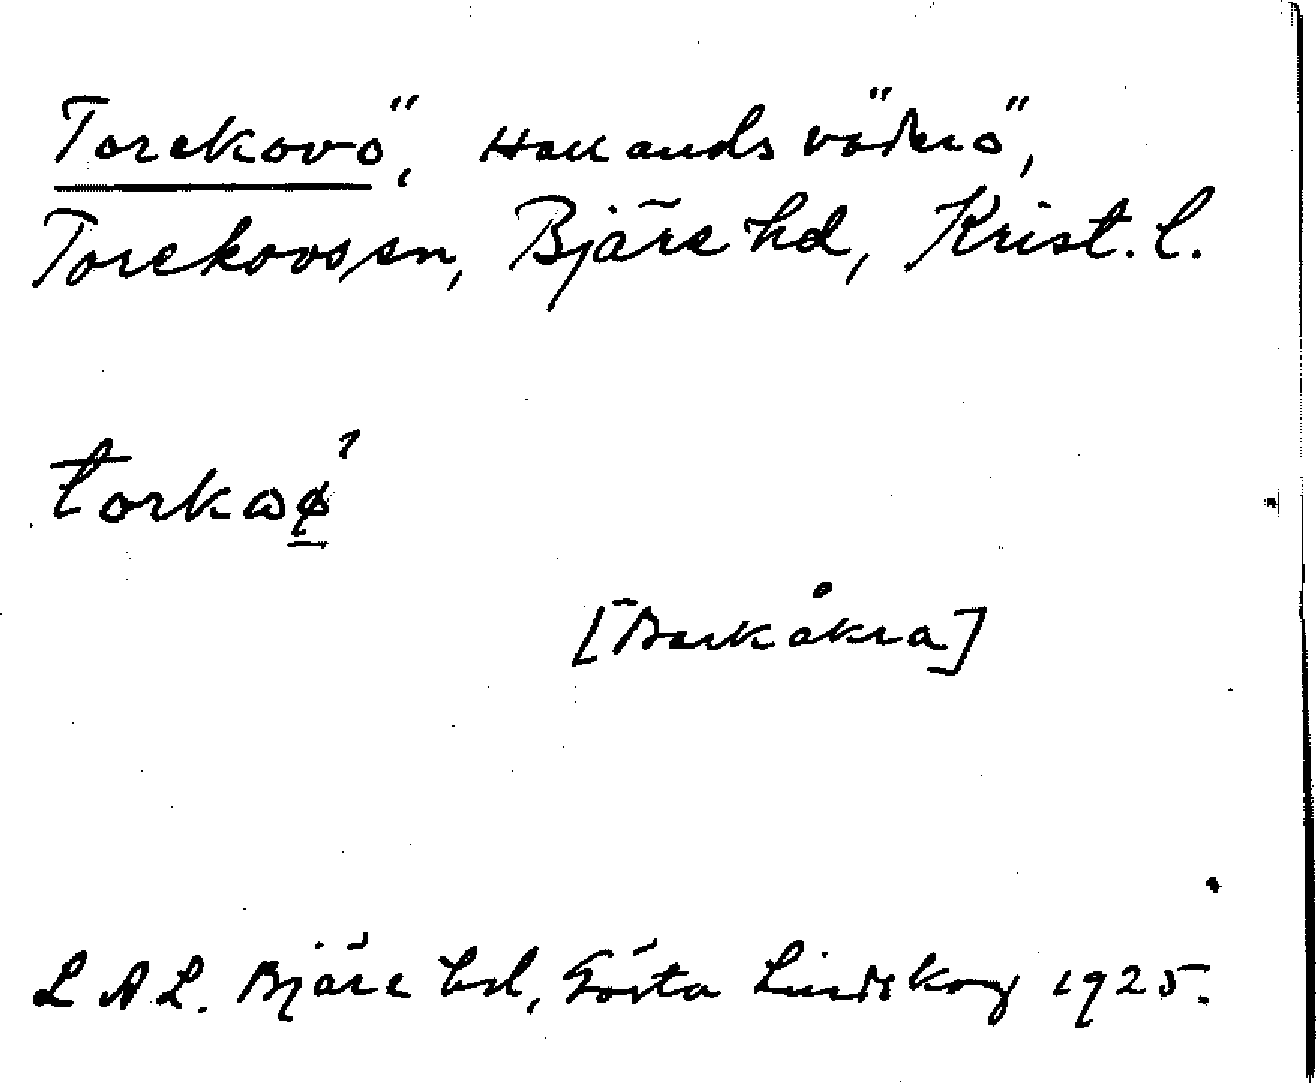 Torekovö, Hallands väderö,
Torekovs sn, Bjäre hd, Krist. l.
torkaø̱ˀ
[Barkåkra]
L A L. Bjäre hd, Gösta Lindskog 1925.